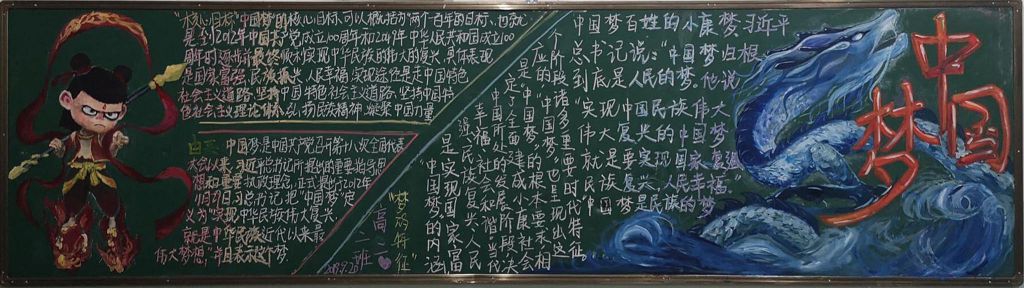 "核心目标"中国梦的核心目标,可以概括为"两个一百年的目标,也就
是:到2021年中国共产党成立100周年和2049年中华人民共和国成立100
周年时,逐步并最终顺利实现中华民族的伟大的复兴,具体表现
是国家富强,民族振兴,人民幸福,实现途径是走中国特色
社会主义道路,坚持中国特色社会主义道路,坚持中国特
色社会主义理论体系,弘扬民族精神,凝聚中国力量
中国梦是中国共产党召开第十八次全国代表
大会以来,习近平总书记所提出的重要指导思
想和重要执政理念,正式提出于2012年
11月29日,习总书记把"中国梦"定
义为"实现中华民族伟大复兴,
就是中华民族近代以来最
伟大梦想",并且表示这个梦
"梦的特征"
高二
二班
"中国梦"的内涵
是实现国家富
强、民族复兴、人民
幸福、社会和谐,当代
中国所处的发展阶段决
定了全面建成小康社会
是"中国梦"的根本要求,相
应的,"中国梦"也呈现出这
个阶段诸多重要时代特征。
中国梦百姓的小康梦习近平
总书记说:"中国梦归根
到底是人民的梦。他说
"实现中国民族伟大
复兴的中国梦
中国梦